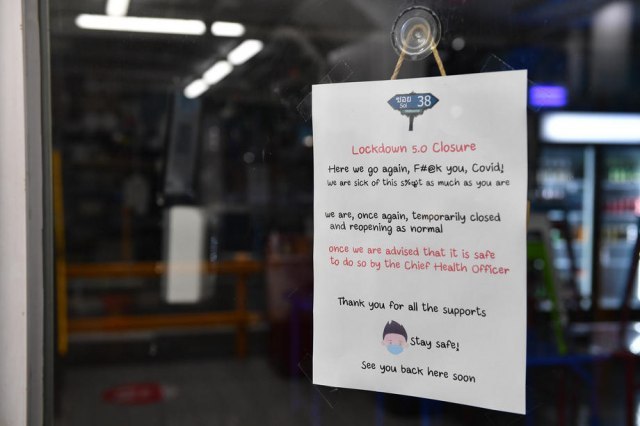 ซอย
Soi 38
Lockdown 5.0 Closure
Here we go again, F#@k you, Covid!
We are sick of this s%
as much as you are
we are, once again, temporarily closed
and reopening as normal
once we are advised that it is safe
to do so by the Chief Health Officer
Thank you for all the supports
Stay safe!
See you back here soon